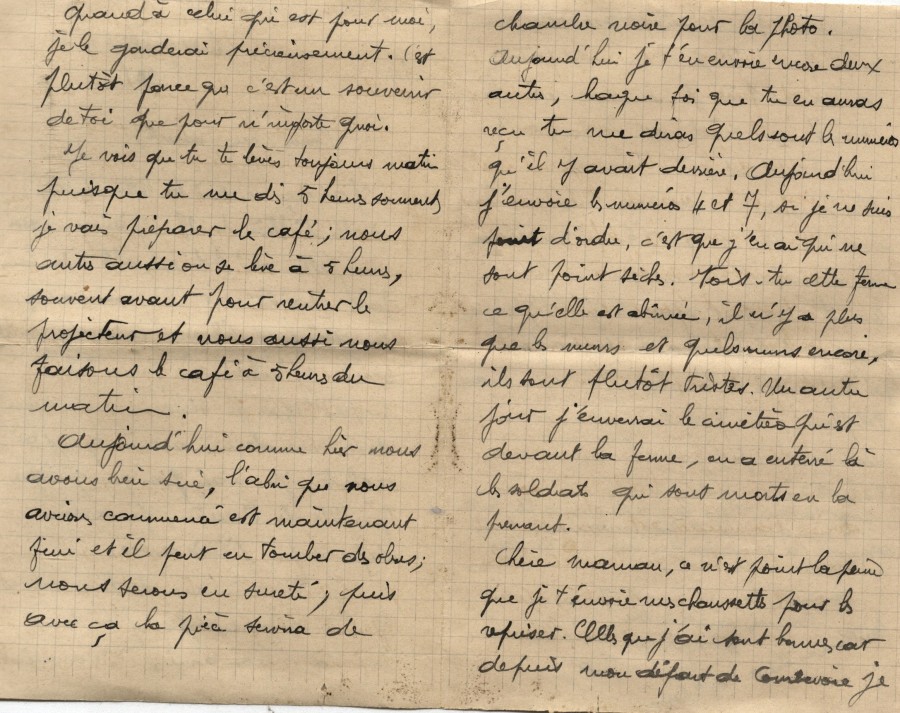 quand à celui qui est pour moi,
je le garderai précieusement. C'est
plutôt parce que c'est un souvenir
de toi que pour n'importe quoi.
Je vois que tu te lèves toujours matin
puisque tu me dis 5 heures sonnent
je vais préparer le café; nous
autres aussi on se lève à 5 heures,
souvent avant pour rentrer le
projecteur et nous aussi nous
faisons le café à 5 heures du
matin.
Aujourd'hui comme hier nous
avons bien sué, l'abri que nous
avions commencé est maintenant
fini et il peut en tomber des obus;
nous serons en sureté; puis
avec ça la pièce servira de
chambre noire pour la photo.
Aujourd'hui je t'en envoie encore deux
autres, chaque foi que tu en auras
reçu tu me diras quels sont les numéros
qu'il y avait derrière. Aujourd'hui
j'envoie les numéros 4 et 7, si je ne suis
point d'ordre, c'est que j'en ai qui ne
sont point sèches. Vois-tu cette ferme
ce qu'elle est abîmée, il n'y a plus
que les murs et quels murs encore,
ils sont plutôt tristes. Un autre
jour j'enverrai le cimetière qui est
devant la ferme, on a enterré là
les soldats qui sont morts en la
prenant.
Chère maman, ce n'est point la peine
que je t'envoie mes chaussettes pour les
repriser. Celles que j'ai sont bonnes car
depuis mon départ de Courbevoie je